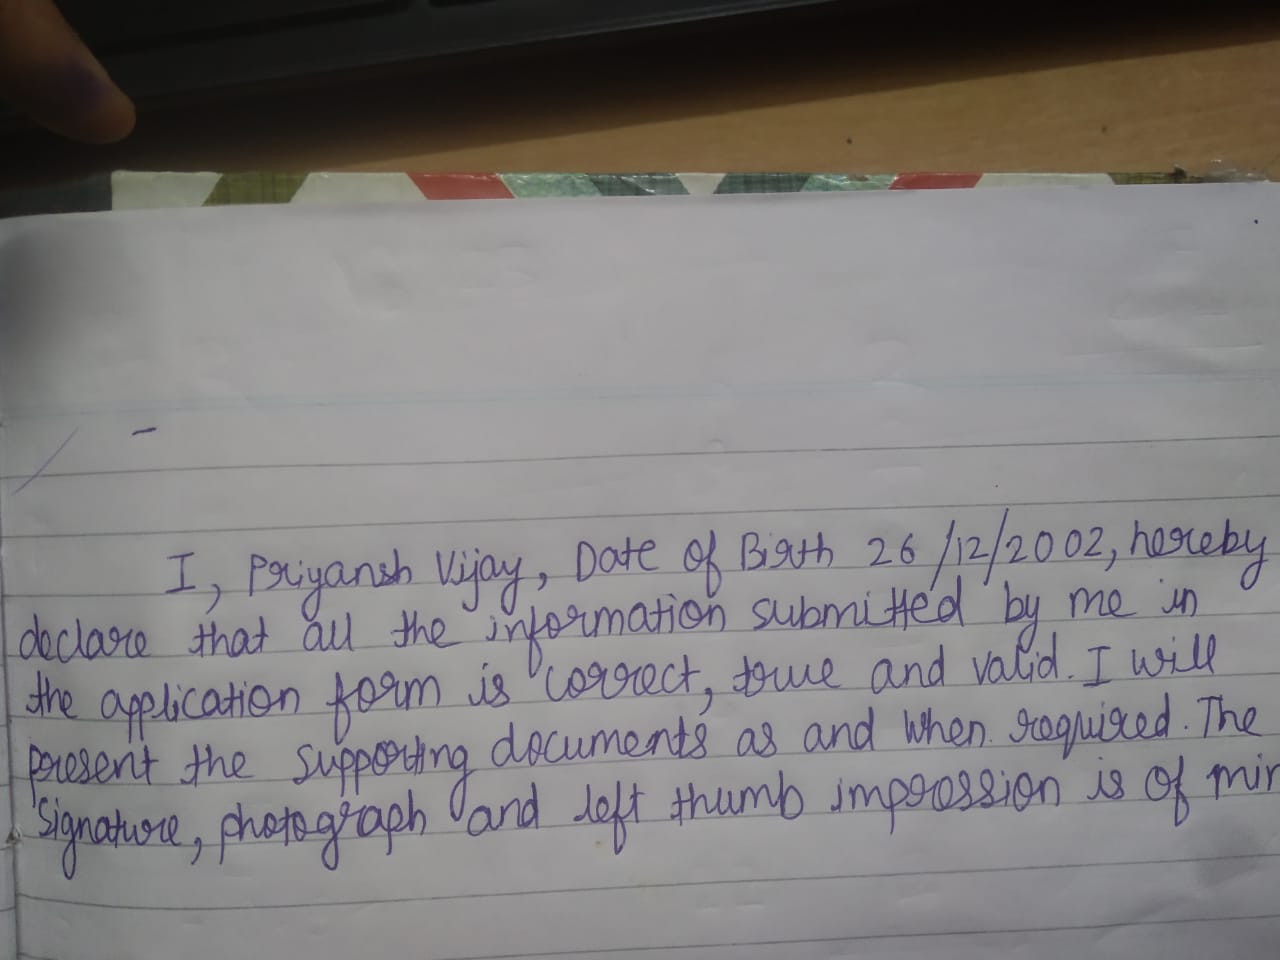 I, Priyansh Vijay, Date of Birth 26/12/2002, hereby
declare that all the information submitted by me in
the application form is correct, true and valid. I will
present the supporting documents as and when required. The
signature, photograph and left thumb impression is of min